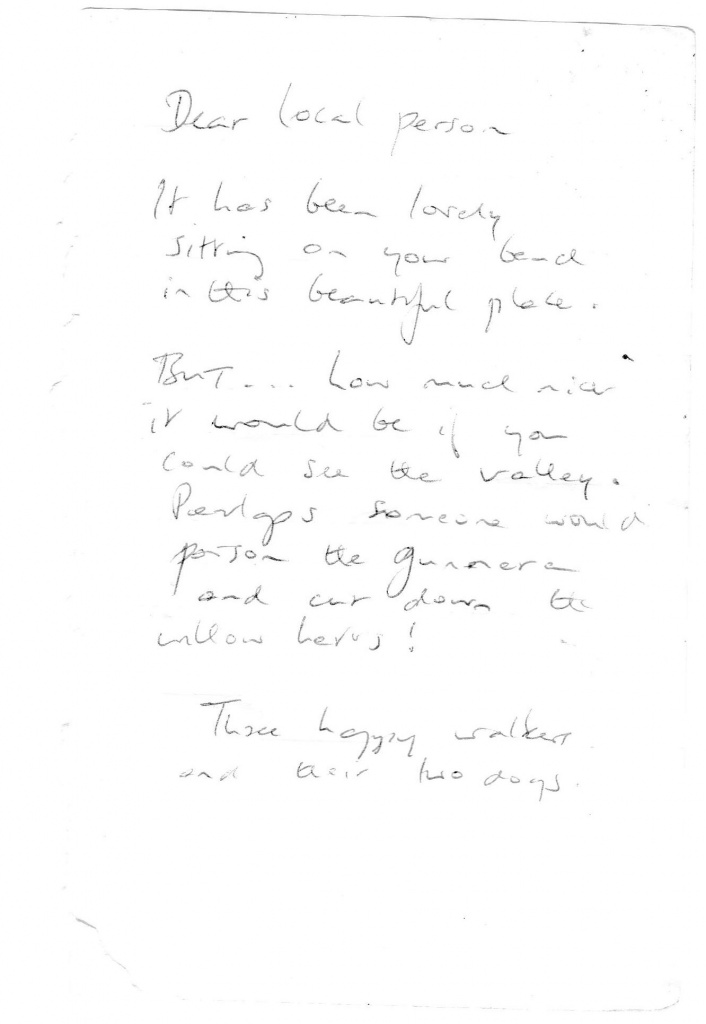 Dear local person
It has been lovely
sitting on your bench
in this beautiful place.
BUT.... how much nicer
it would be if you
could see the valley.
Perhaps someone would
poison the gunnera
and cut down the
willow herbs!
Three happy walkers
and their two dogs.